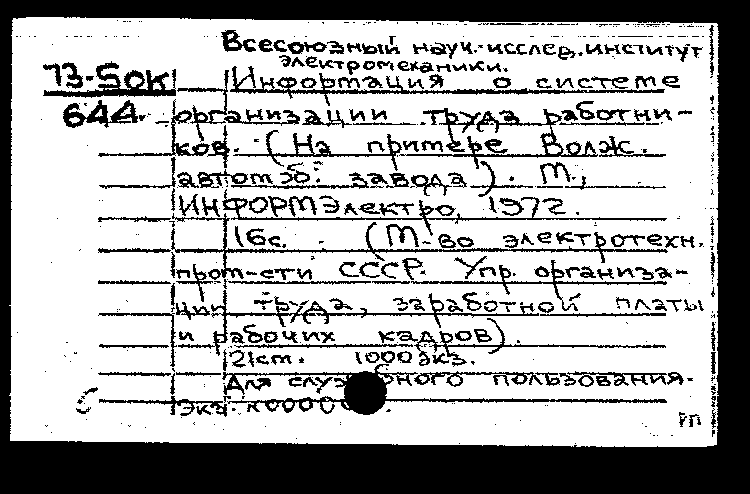 Всесоюзный науч.-исслед. институт
электромеханики.
73-5ок Информация о системе
644. организации труда работни-
ков. (На примере Волж.
автомоб. завода). М.,
ИНФОРМЭлектро, 1972.
16с. (М-во электротехн.
пром-сти СССР. Упр. организа-
ции труда, заработной платы
и рабочих кадров).
21см. 1000экз.
Для служебного пользования.
Экз.